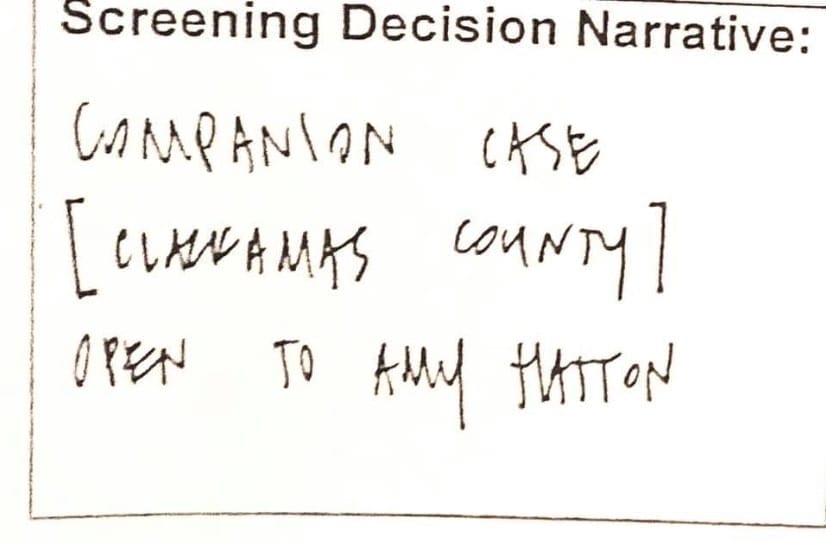 Screening Decision Narrative:
COMPANION CASE
[CLACKAMAS COUNTY]
OPEN TO AMY HATTON